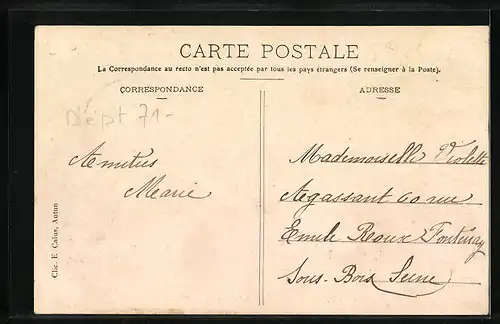 CARTE POSTALE
La Correspondance au recto n'est pas acceptée par tous les pays étrangers (Se renseigner à la Poste).
CORRESPONDANCE
Dépt 71-
Amitiés
Marie
Clic. E Calus, Autun
ADRESSE
Mademoiselle Violette
Agassant 60 rue
Emile Roux Fontenay
Sous-Bois Seine